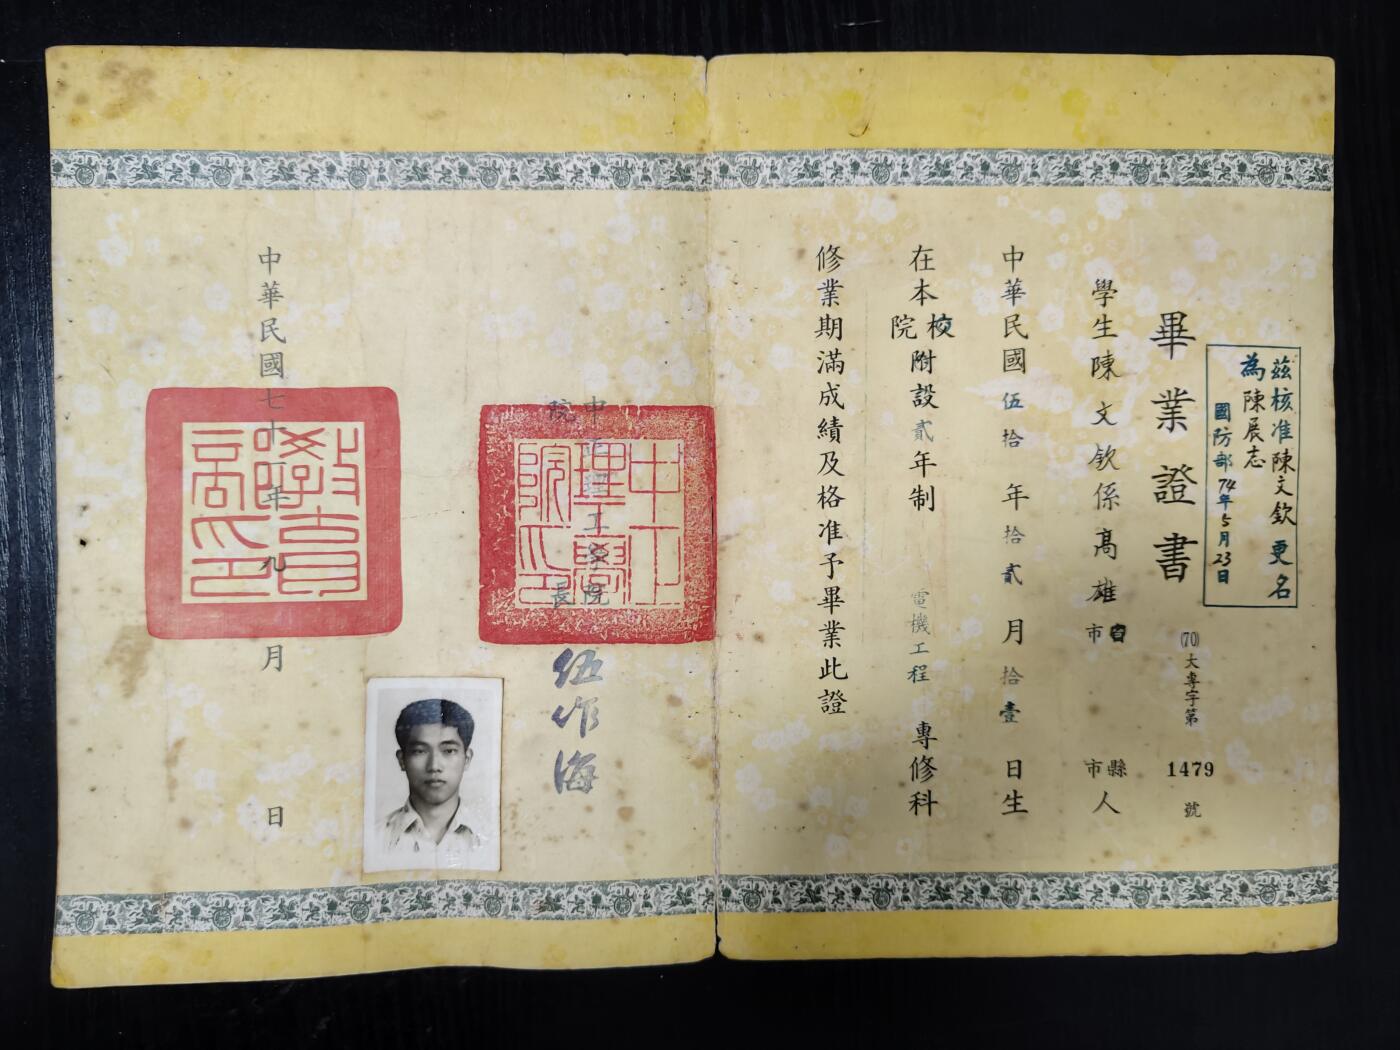 茲核准陳文欽更名
為陳展志
國防部74年5月23日
畢業證書
(70)大專字第1479號
學生陳文欽係高雄市 縣市人
中華民國伍拾年拾貳月拾壹日生
在本校院附設貳年制電機工程專修科
修業期滿成績及格准予畢業此證
中正理工學院院長
伍作海
中正理工學院印
中華民國七十一年九月日
教育部印